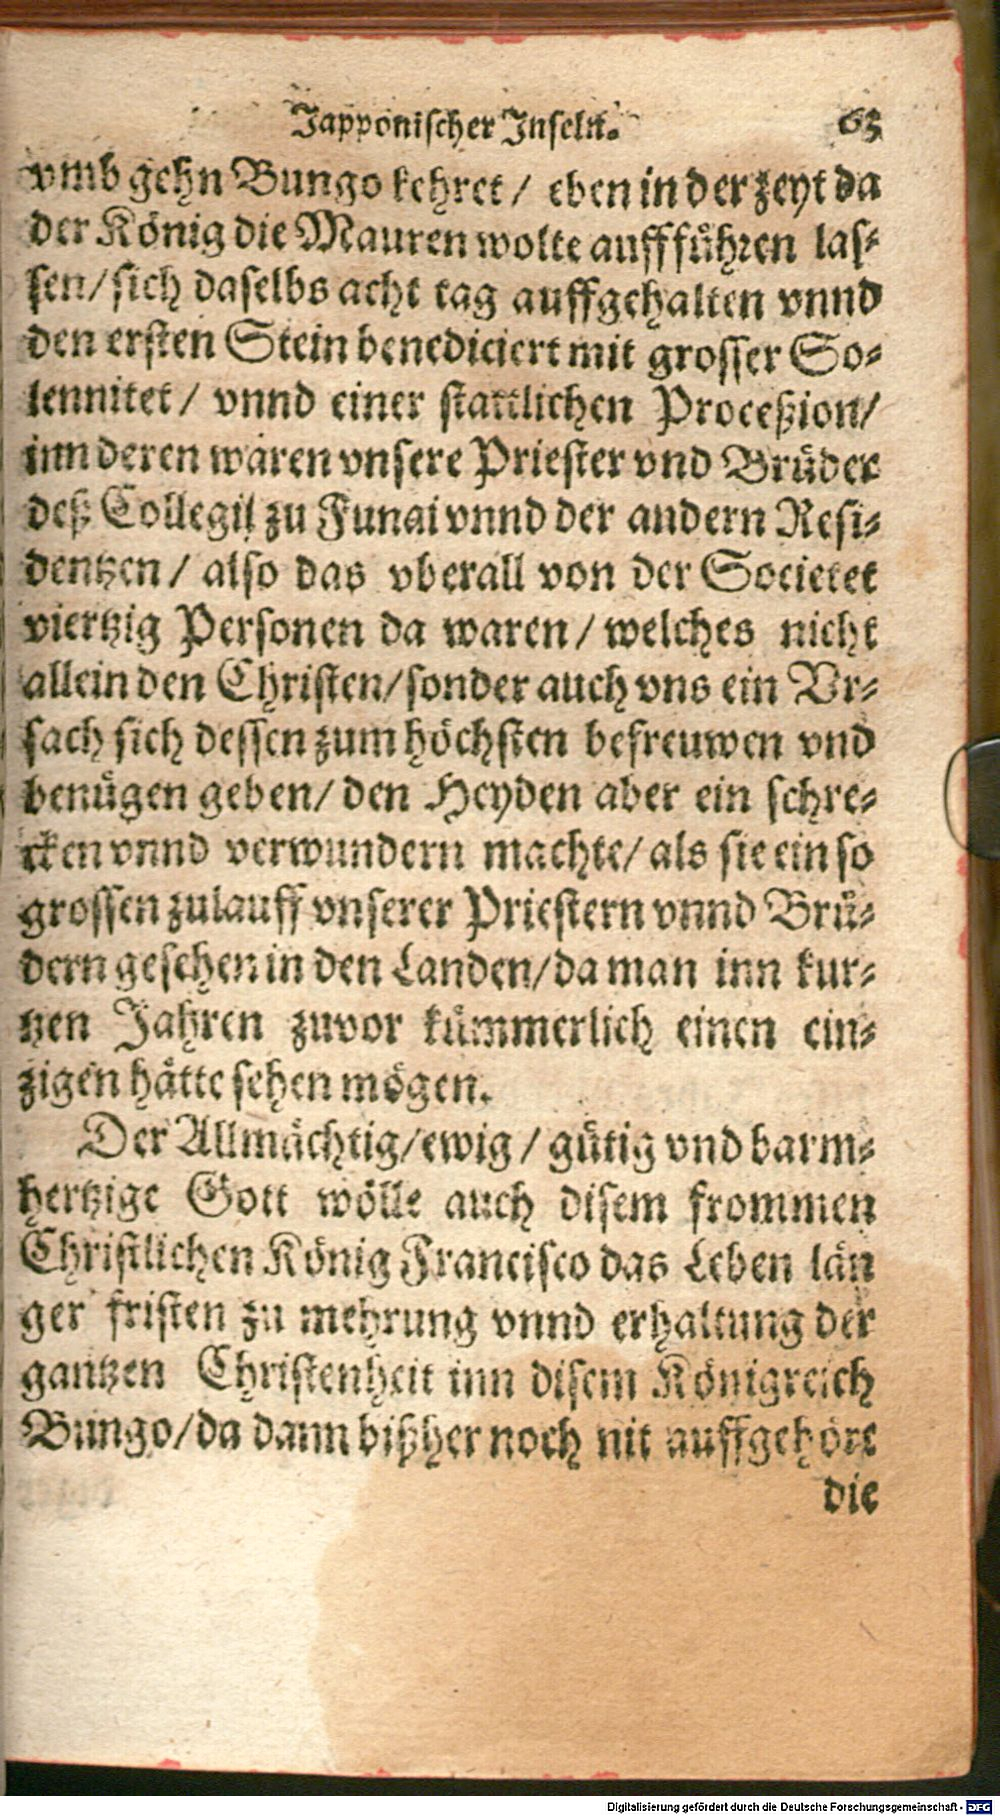 Japponischer Inseln. 63
vmb gehn Bungo kehret / eben in der zeyt da
der König die Mauren wolte auffführen las-
sen/ sich daselbs acht tag auffgehalten vnnd
den ersten Stein benediciert mit grosser So-
lennitet / vnnd einer stattlichen Proceßion/
inn deren waren vnsere Priester vnd Brüder
deß Collegij zu Funai vnnd der andern Resi-
dentzen / also das vberall von der Societet
viertzig Personen da waren / welches nicht
allein den Christen/ sonder auch vns ein Vr-
sach sich dessen zum höchsten befreuwen vnd
benügen geben/ den Heyden aber ein schre-
cken vnnd verwundern machte/ als sie ein so
grossen zulauff vnserer Priestern vnnd Brü-
dern gesehen in den Landen/ da man inn kur-
tzen Jahren zuvor kümmerlich einen ein-
zigen hätte sehen mögen.
Der Allmächtig/ ewig / gütig vnd barm-
hertzige Gott wölle auch disem frommen
Christlichen König Francisco das Leben län
ger fristen zu mehrung vnnd erhaltung der
gantzen Christenheit inn disem Königreich
Bungo/ da dann bißher noch nit auffgehört
die
Digitalisierung gefördert durch die Deutsche Forschungsgemeinschaft - DFG